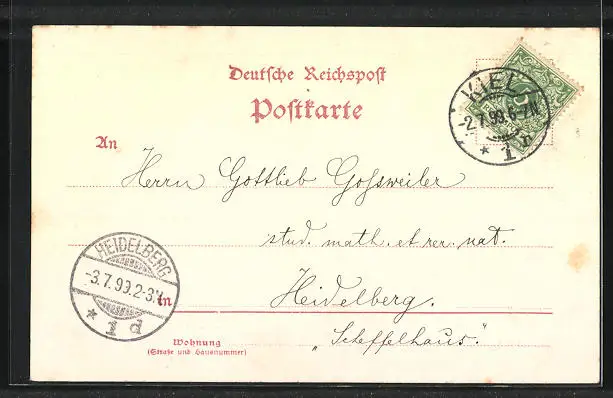 Deutsche Reichspost
Postkarte
KIEL
-2.7.99.6-7N.
* 1 n
5
An
Herrn Gottlieb Gossweiler
stud. math. et rer. nat.
HEIDELBERG
-3.7.99.2-3N
* 1 d
in
Heidelberg.
Wohnung
(Straße und Hausnummer)
„Scheffelhaus."